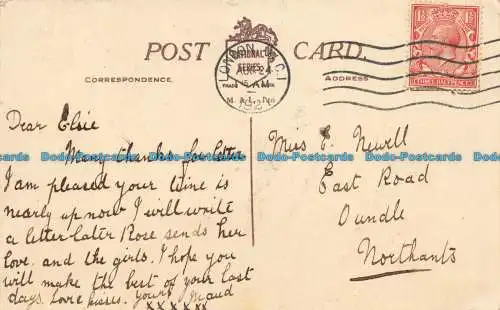 POST CARD.
NATIONAL
SERIES
M. & L., Ltd
CORRESPONDENCE.
ADDRESS
LONDON, W.C.1
AM
1½ 1½
Dear Elsie
Many thanks for letter
I am pleased your time is
nearly up now I will write
a letter later Rose sends her
love and the girls. I hope you
will make the best of your last
days. Love & kisses. yours Maud
xxxxxx
Miss E. Newell
East Road
Oundle
Northants
Dodo-Postcards Dodo-Postcards Dodo-Postcards Dodo-Postcards